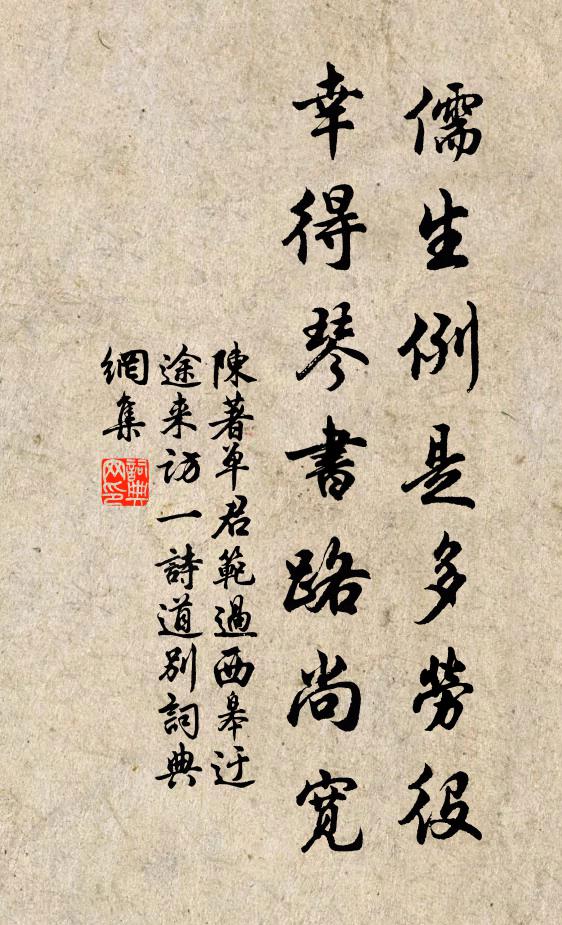 儒生例是多勞役
幸得琴書路尚寬
陳著单君範過西皋迂
途来访一詩道别詞典
網集
詞典網印